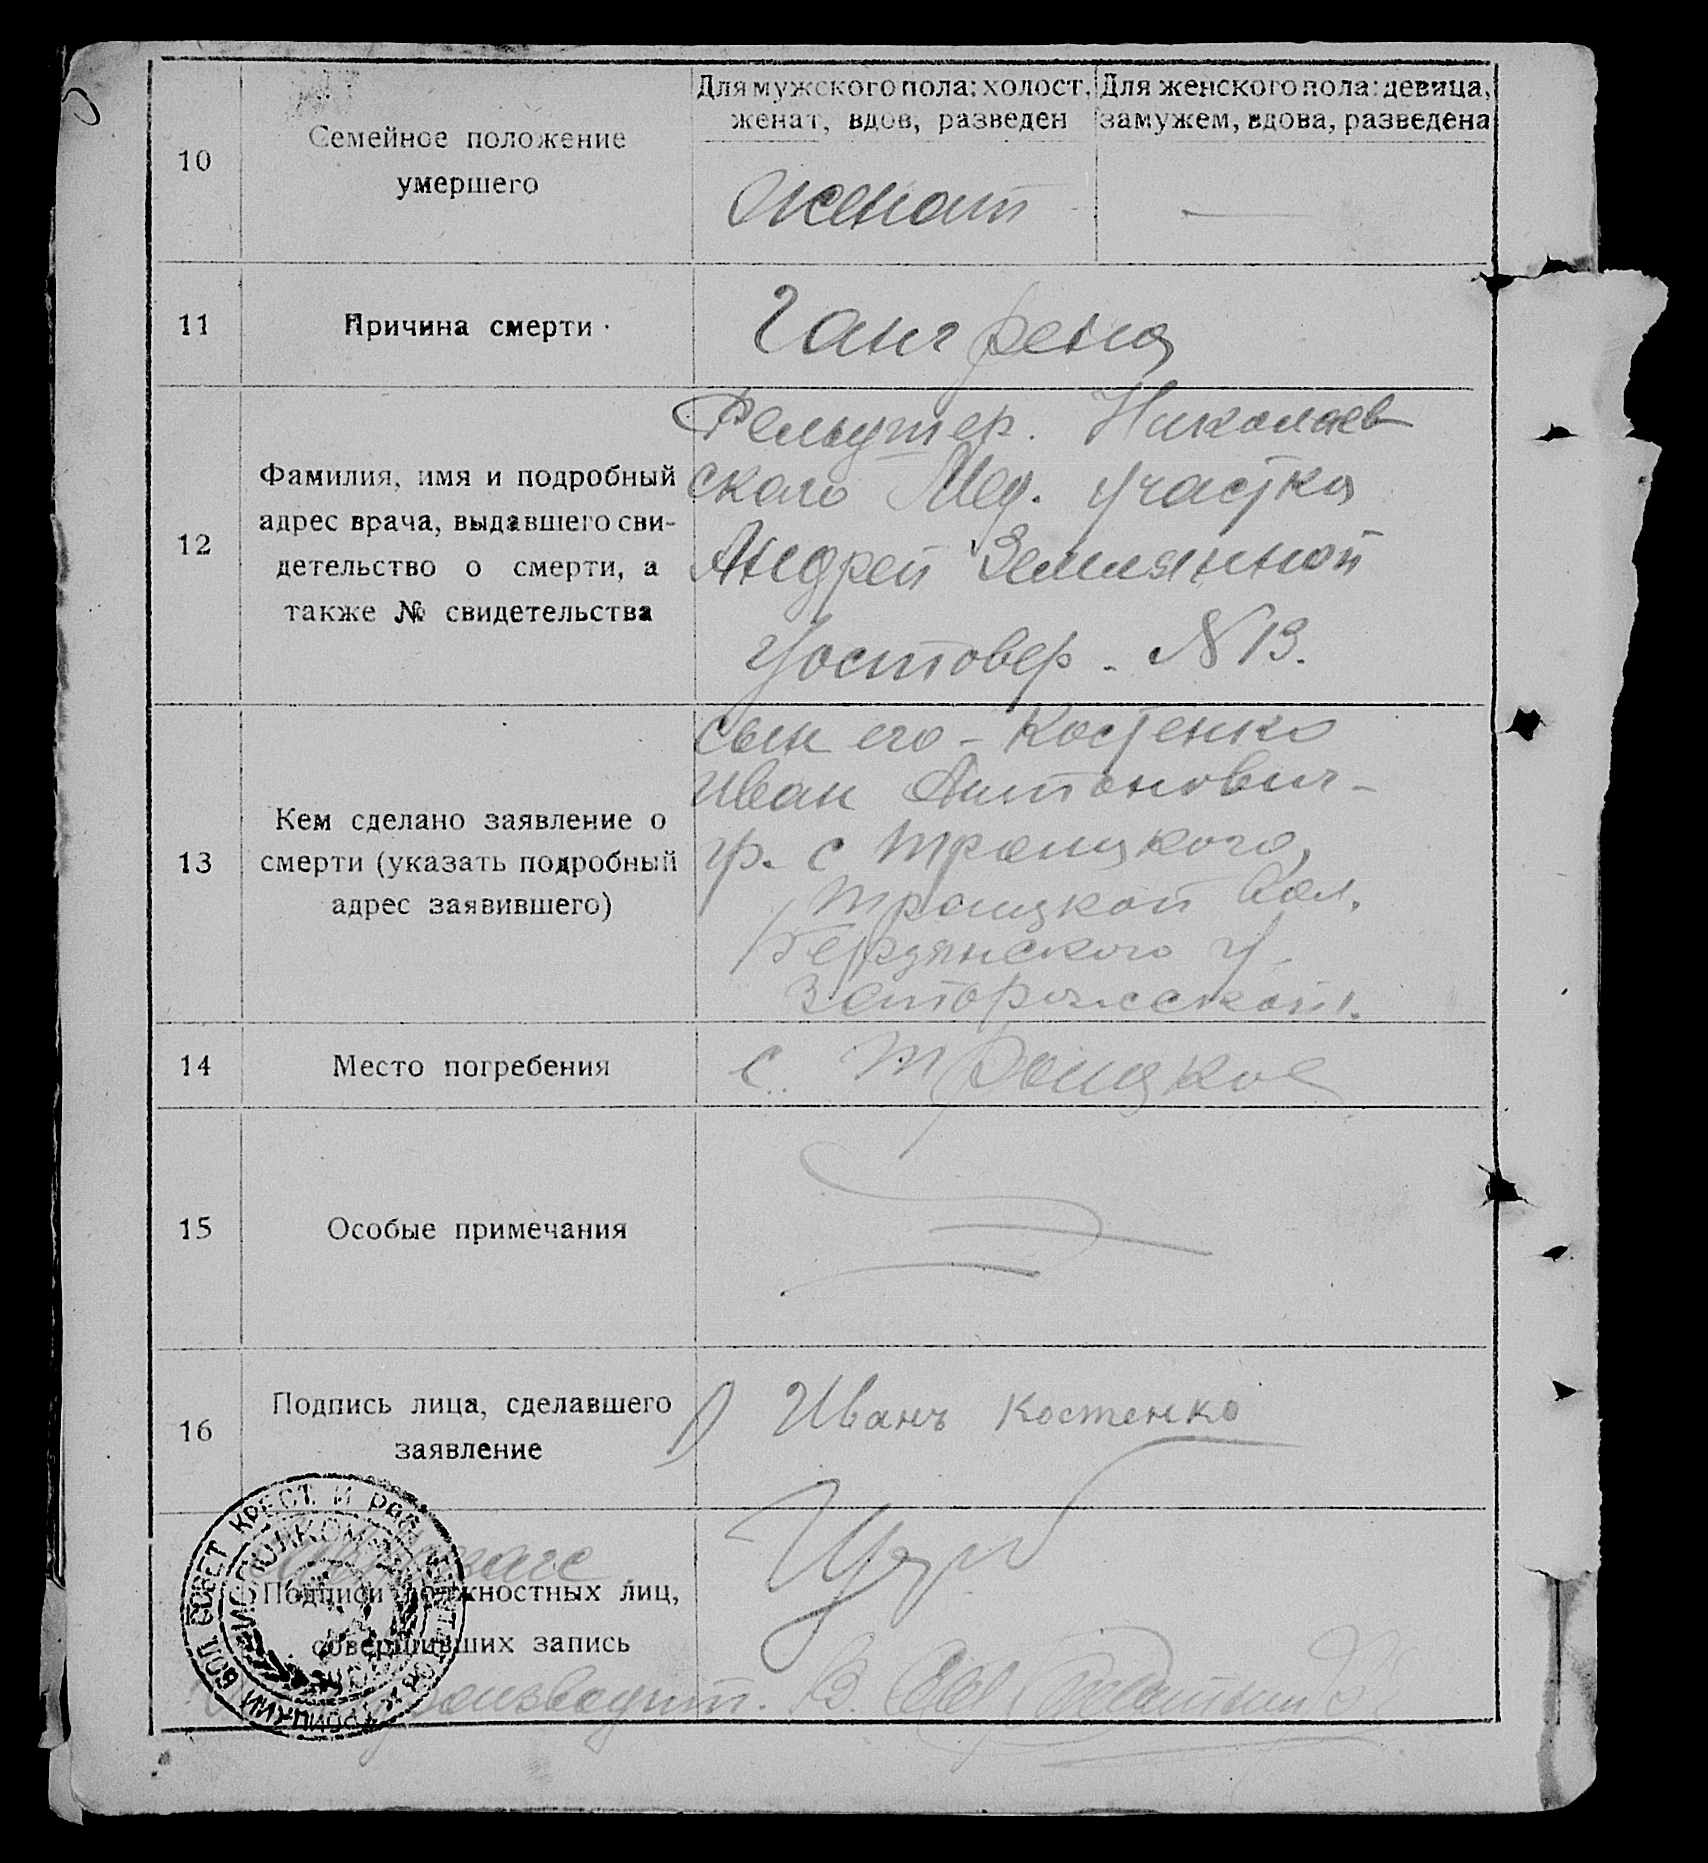 10
Семейное положение
умершего
Для мужского пола: холост,
женат, вдов, разведен
Для женского пола: девица,
замужем, вдова, разведена
Женат
—
11
Причина смерти
Гангрена
12
Фамилия, имя и подробный
адрес врача, выдавшего сви-
детельство о смерти, а
также № свидетельства
Фельдшер. Николаев
ского Мед. участка
Андрей Земляной
Удостовер. N 13.
13
Кем сделано заявление о
смерти (указать подробный
адрес заявившего)
сын его - Костенко
Иван Антонович -
гр. с Троицкого,
Троицкой Вол.
Бердянского у.
Запорожской г.
14
Место погребения
с. Троицкое
15
Особые примечания
16
Подпись лица, сделавшего
заявление
Иванъ Костенко
Подписи должностных лиц,
совершивших запись
Делопроизводит. В.
ТРОИЦКИЙ ВОЛ. СОВЕТ КРЕСТ. И РАБ.
ИСПОЛКОМ